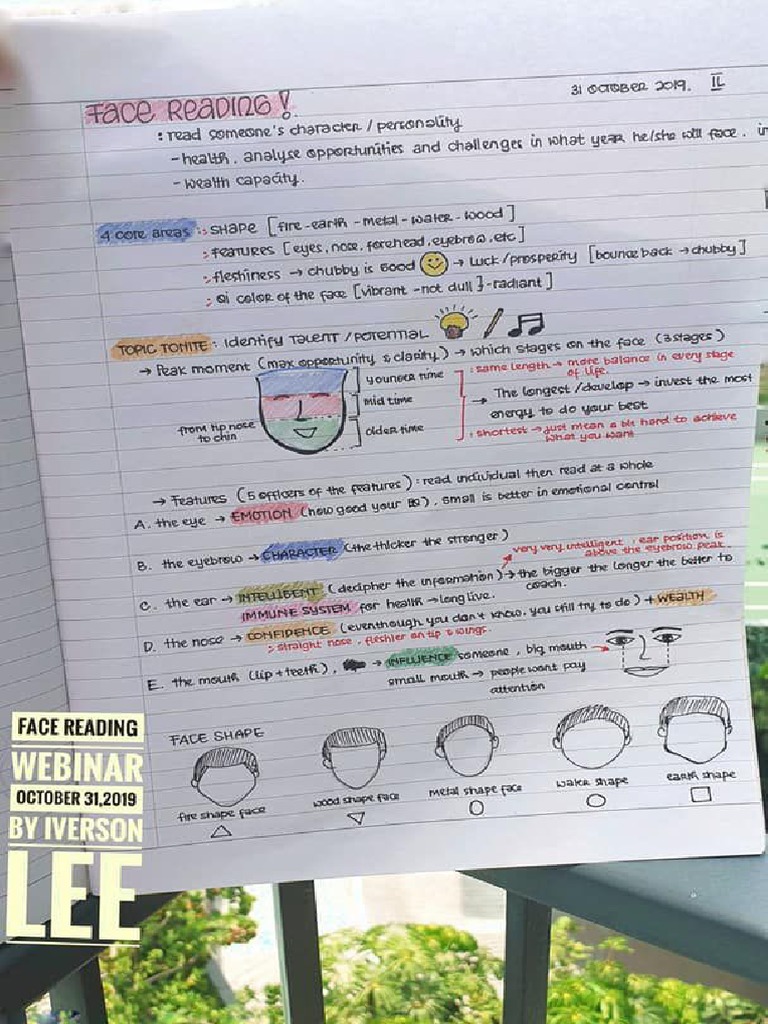 31 OCTOBER 2019. II
FACE READING!
: read someone's character / personality
- health, analyse opportunities and challenges in what year he/she will face. in
- wealth capacity.
4 core areas :: SHAPE [fire - earth - metal - water - wood]
: features [eyes, nose, forehead, eyebrow, etc]
: fleshiness → chubby is good → luck/prosperity [bounce back → chubby]
: qi color of the face [vibrant - not dull } - radiant]
TOPIC TONITE : Identify TALENT / POTENTIAL
→ Peak moment (max opportunity & clarity) → which stages on the face (3 stages)
younger time
mid time
older time
from tip nose
to chin
: same length → more balance in every stage
of life.
→ The longest / develop → invest the most
energy to do your best
: shortest → just mean a bit hard to achieve
what you want
→ Features (5 officers of the features) : read individual then read at a whole
A. the eye → EMOTION (how good your EQ), small is better in emotional control
B. the eyebrow → CHARACTER (the thicker the stronger)
very very intelligent : ear position is
above the eyebrow peak.
C. the ear → INTELLIGENT (decipher the information) → the bigger the longer the better to
coach.
IMMUNE SYSTEM for health → long live.
D. the nose → CONFIDENCE (eventhough you don't know, you still try to do) + WEALTH
: straight nose, fleshier on tip & wings.
E. the mouth (lip + teeth), → INFLUENCE someone, big mouth →
small mouth → people want pay
attention
FACE SHAPE
fire shape face
wood shape face
metal shape face
water shape
earth shape
FACE READING
WEBINAR
OCTOBER 31,2019
BY IVERSON
LEE